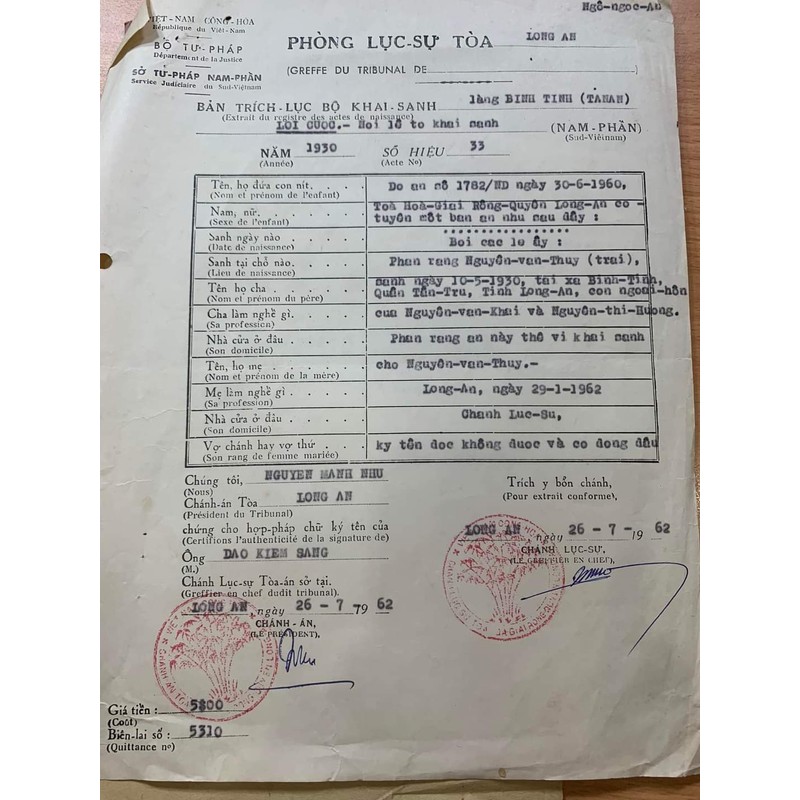 Ngô-ngoc-An
VIỆT-NAM CỘNG-HÒA
République du Viêt-Nam
BỘ TƯ-PHÁP
Département de la Justice
SỞ TƯ-PHÁP NAM-PHẦN
Service Judiciaire du Sud-Viêtnam
PHÒNG LỤC-SỰ TÒA LONG AN
(GREFFE DU TRIBUNAL DE)
BẢN TRÍCH-LỤC BỘ KHAI-SANH làng BINH TINH (TANAN)
(Extrait du registre des actes de naissance)
LOI CUOC.- Noi lê to khai sanh (NAM-PHẦN)
(Sud-Viêtnam)
NĂM 1930 SỐ HIỆU 33
(Année) (Acte No)
Tên, họ đứa con nít. . . . Do an sô 1782/ND ngày 30-6-1960,
(Nom et prénom de l'enfant)
Nam, nữ. . . . . Toà Hoà-Giai Rông-Quyên Long-An co -
(Sexe de l'enfant) tuyên môt ban an nhu sau đây :
Sanh ngày nào . . . . .
(Date de naissance) Boi cac le ây :
Sanh tại chổ nào. . . . . Phan rang Nguyên-van-Thuy (trai),
(Lieu de naissance)
Tên, họ cha . . . . sanh ngày 10-5-1930, tai xa Binh-Tinh,
(Nom et prénom du père) Quân Tân-Tru, Tinh Long-An, con ngoai-hôn
Cha làm nghề gì. . . . . cua Nguyên-van-Khai và Nguyên-thi-Huong.
(Sa profession)
Nhà cửa ở đâu . . . . Phan rang an này thê vi khai sanh
(Son domicile)
Tên, họ mẹ . . . . cho Nguyên-van-Thuy.-
(Nom et prénom de la mère)
Mẹ làm nghề gì . . . . Long-An, ngày 29-1-1962
(Sa profession)
Nhà cửa ở đâu . . . . Chanh Luc-Su,
(Son domicile)
Vợ chánh hay vợ thứ . . . . ky tên doc không duoc và co dong dâu
(Son rang de femme mariée)
Chúng tôi, NGUYEN MANH NHU
(Nous)
Chánh-án Tòa LONG AN
(Président du Tribunal)
chứng cho hợp-pháp chữ ký tên của
(Certifions l'authenticité de la signature de)
Ông DAO KIEM SANG
(M.)
Chánh Lục-sự Tòa-án sở tại.
(Greffier en chef dudit tribunal).
LONG AN, ngày 26 - 7 - 1962
CHÁNH - ÁN,
(LE PRÉSIDENT),
Trích y bổn chánh,
(Pour extrait conforme),
LONG AN, ngày 26 - 7 - 1962
CHÁNH LỤC-SỰ,
(LE GREFFIER EN CHEF),
Giá tiền : 5$00
(Coût)
Biên-lai số : 5310
(Quittance no)